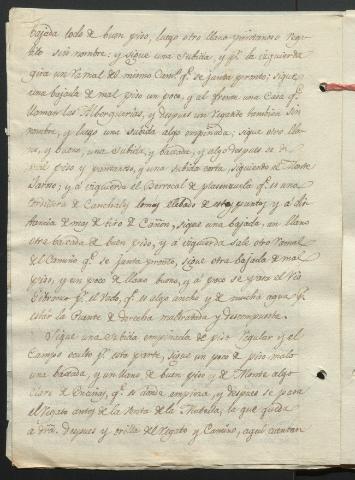 bajada todo de buen piso, luego otro llano pantanoso Rega-
tito sin nombre: y sigue una Subida, y pr. la izquierda
gira un Ramal del mismo Camo. qe. se junta pronto; sigue
una bajada de mal piso un poco, y al frente una Casa qe.
llaman las Alberguerias, y despues un Regato tambien sin
nombre, y luego una subida algo empinada; sigue otro lla-
no, y bueno, una Subida, y bajada, y algo despues se da
mal piso y pantanoso, y una subida corta, siguiendo el Monte
Jaroso; y á izquierda el Berrocal de plasenzuela qe. es una
cordillera de Canchales lo mas elebado de este punto, y á dis-
tancia de mas de tiro de Cañon, sigue una bajada, un llano
otra bajada de buen piso, y á izquierda sale otro Ramal
del Camino qe. se junta pronto, sigue otra bajada de mal
piso, y un poco de llano bueno, y á poco se pasa el Rio
Gibranzo pr. el Vado, qe. es algo ancho y de mucha agua pr.
estár la Puente de derecha maltratada y descompuesta.
Sigue una Subida empinada de piso regular, y el
Campo oculto pr. esta parte, sigue un poco de piso malo
una bajada, y un llano de buen piso y de Monte algo
claro de Encinas, qe. se donde empieza, y despues se pasa
el Regato antes de la Venta de la Matilla, la que queda
á dra. despues y orilla del Regato y Camino, aqui cuentan